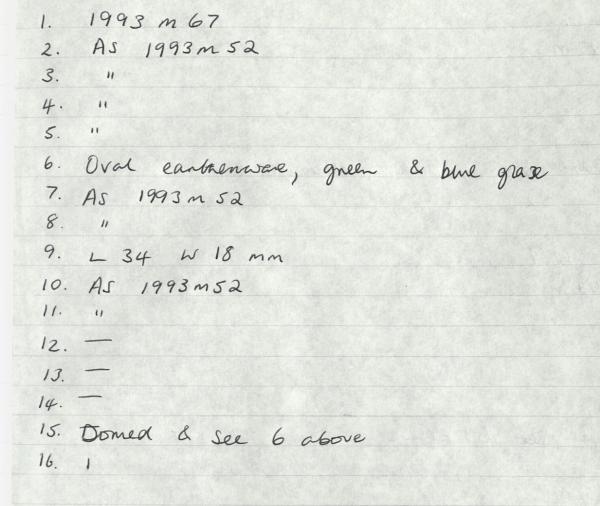 1. 1993 m 67
2. As 1993 m 52
3. "
4. "
5. "
6. Oval earthenware, green & blue graze
7. As 1993 m 52
8. "
9. L 34 W 18 mm
10. As 1993 m 52
11. "
12. —
13. —
14. —
15. Domed & see 6 above
16. 1